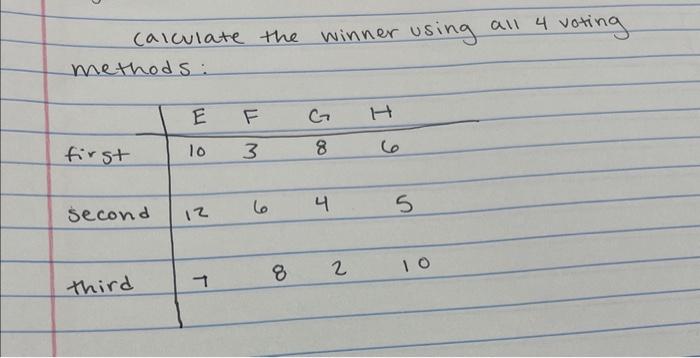 calculate the winner using all 4 voting
methods:
E F G H
first 10 3 8 6
second 12 6 4 5
third 7 8 2 10